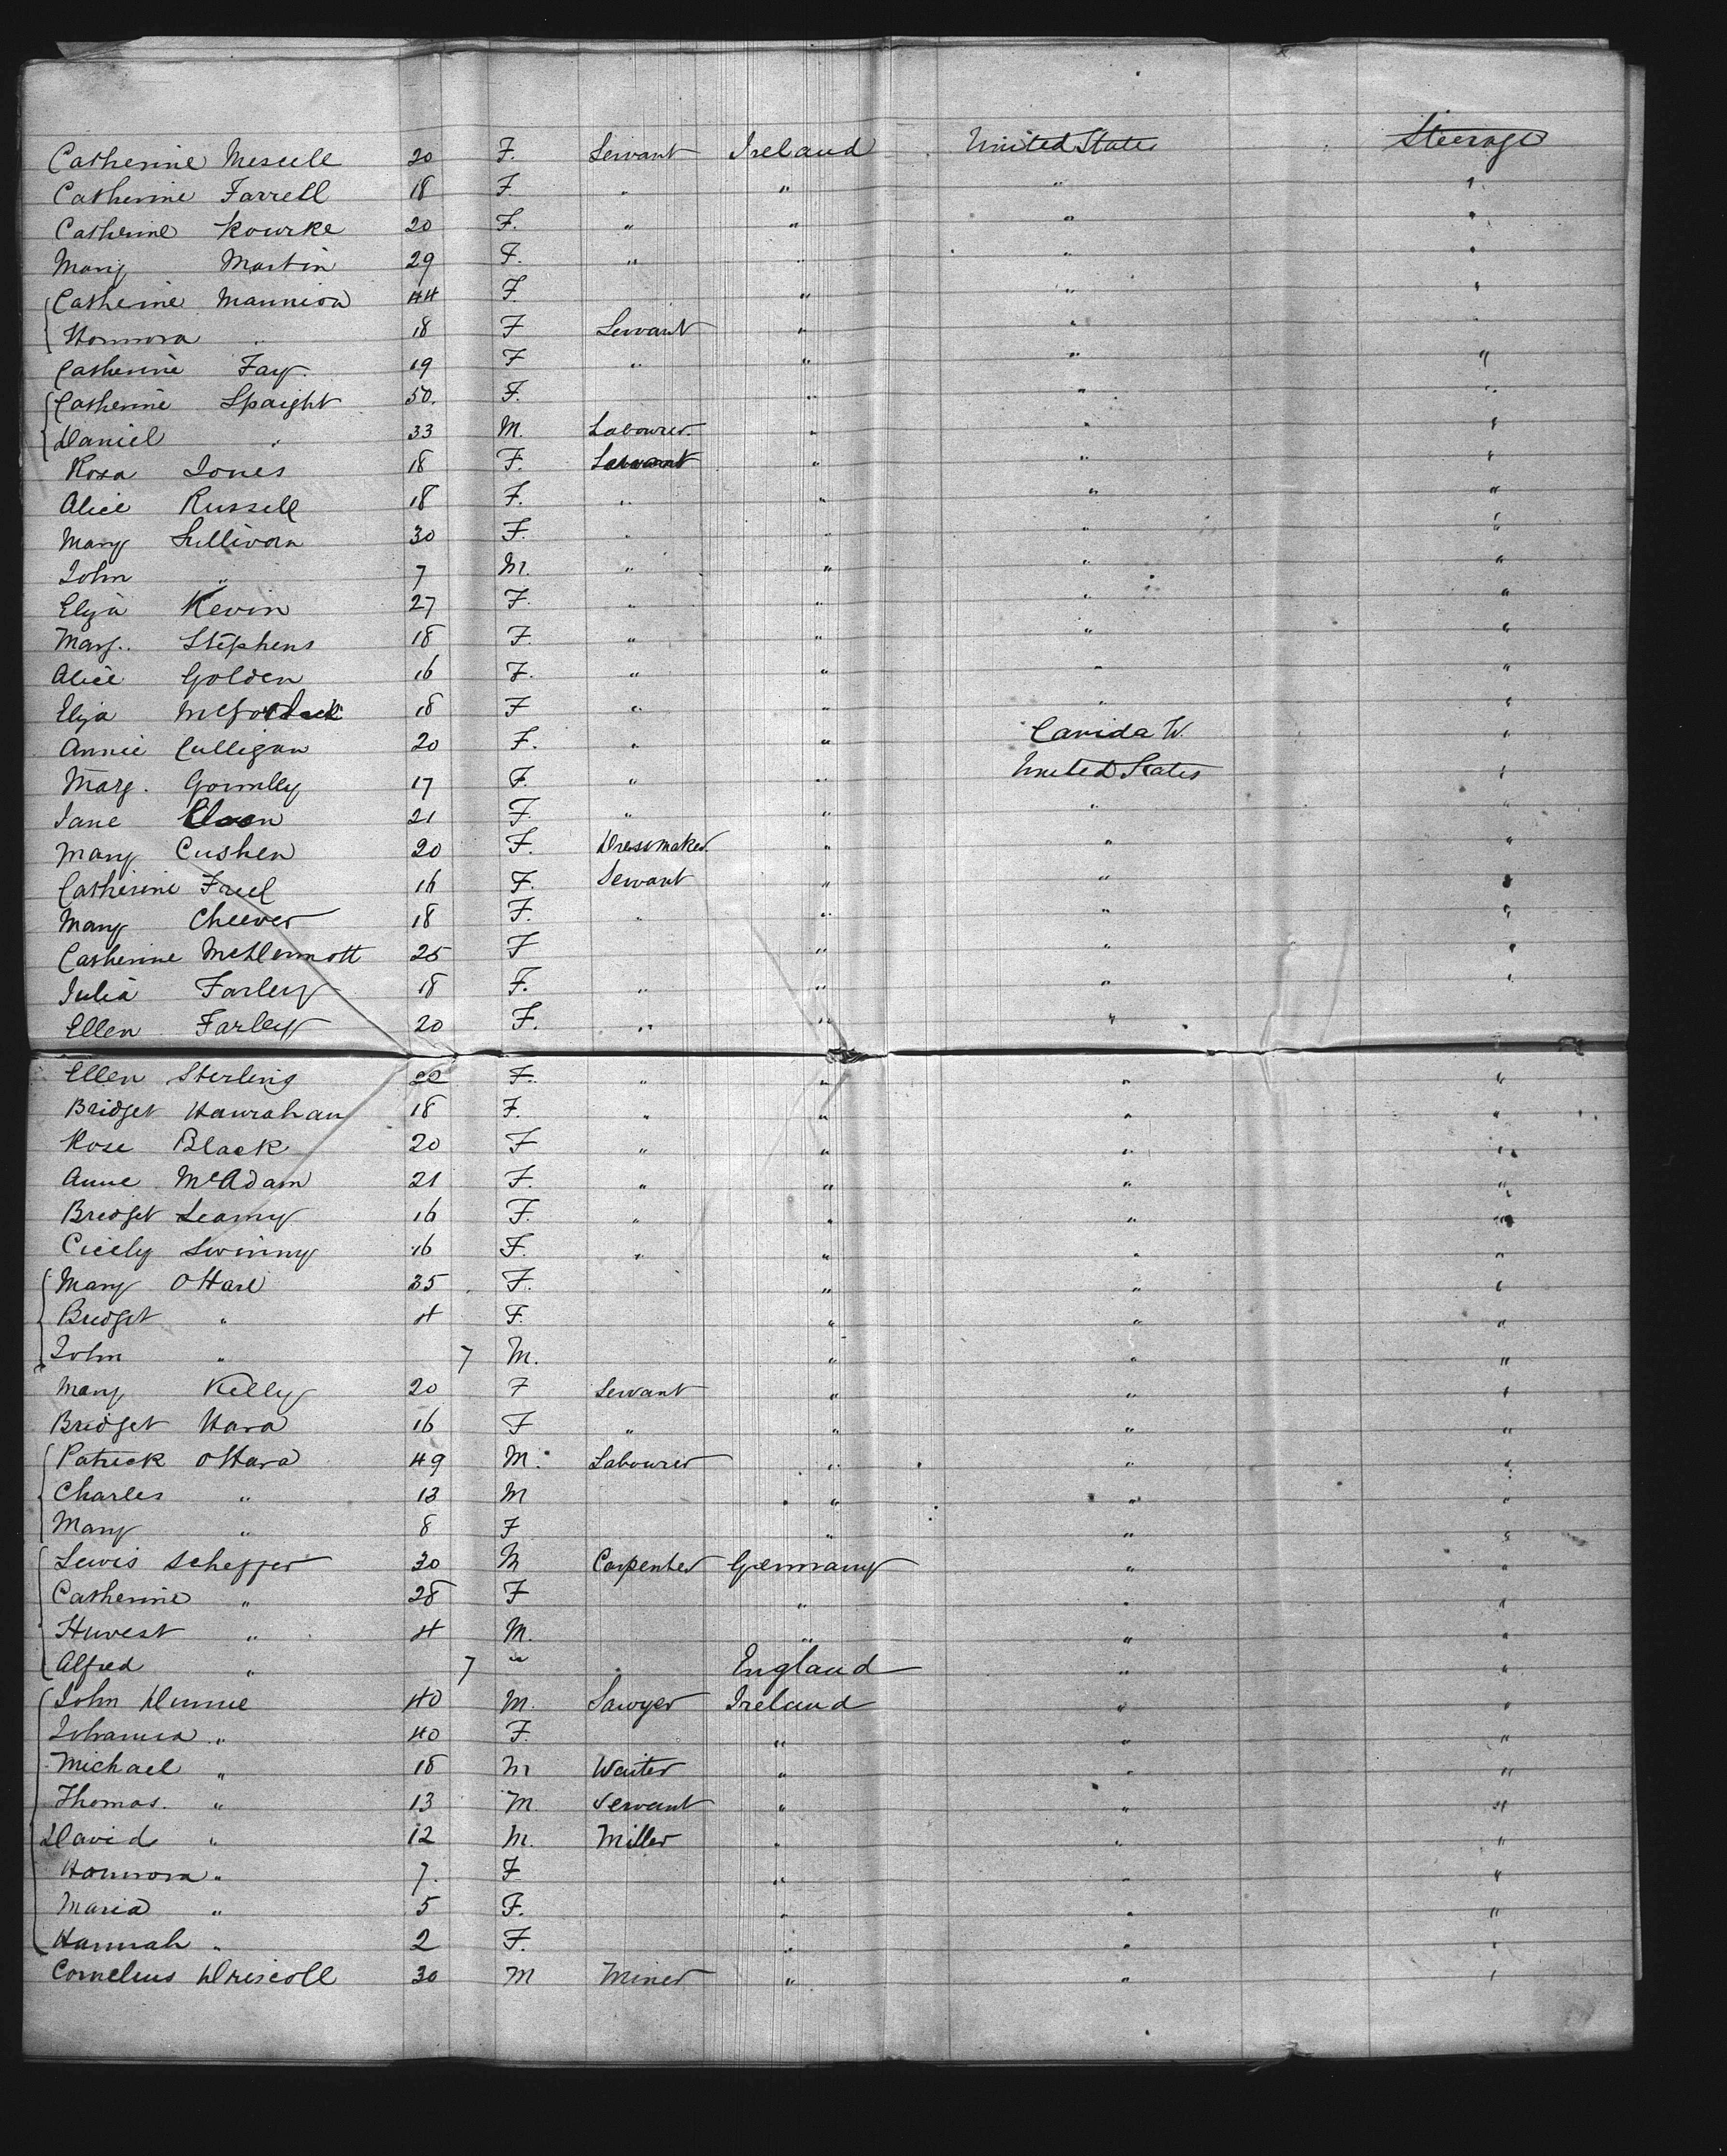 Catherine Mescele 20 F. Servant Ireland United States Steerage
Catherine Farrell 18 F. " " " "
Catherine Rourke 20 F. " " " "
Mary Martin 29 F. " " " "
Catherine Mannion 44 F. " " "
Honnora " 18 F Servant " " "
Catherine Fay 19 F " " " "
Catherine Spaight 50. F. " " "
Daniel " 33 M. Labourer " " "
Rosa Jones 18 F. Servant " " "
Alice Russell 18 F. " " " "
Mary Sullivan 30 F. " " " "
John " 7 M. " " " "
Eliza Kevin 27 F. " " " "
Marg. Stephens 18 F. " " " "
Alice Golden 16 F. " " " "
Eliza 18 F " " " "
Annie Culligan 20 F. " " Canida W. "
Marg. Gormley 17 F. " " United States "
Jane 21 F. " " " "
Mary Cushen 20 F. Dressmaker " " "
Catherine Freel 16 F. Servant " " "
Mary Cheever 18 F. " " " "
Catherine McDermott 25 F " " "
Julia Farley 18 F. " " " "
Ellen Farley 20 F. " " " "
Ellen Sterling 22 F. " " " "
Bridget Hanrahan 18 F. " " " "
Rose Black 20 F " " " "
Anne McAdam 21 F. " " " "
Bridget Leamy 16 F. " " " "
Cicely Swinny 16 F. " " " "
Mary O'Hare 35 F. " " "
Bridget " 4 F. " " "
John " 7 M. " " "
Mary Kelly 20 F Servant " " "
Bridget Hara 16 F " " " "
Patrick O'Hara 49 M. Labourer " " "
Charles " 13 M " " "
Mary " 8 F " " "
Lewis Scheffer 30 M Carpenter Germany " "
Catherine " 28 F " " "
Huvest " 4 M. " " "
Alfred " 7 " England " "
John Dunne 40 M. Sawyer Ireland " "
Johanna " 40 F. " " "
Michael " 18 M Waiter " " "
Thomas. " 13 M. Servant " " "
David " 12 M. Miller " " "
Honnora " 7. F " " "
Maria " 5 F. " " "
Hannah " 2 F. " " "
Cornelius Driscoll 30 M Miner " " "